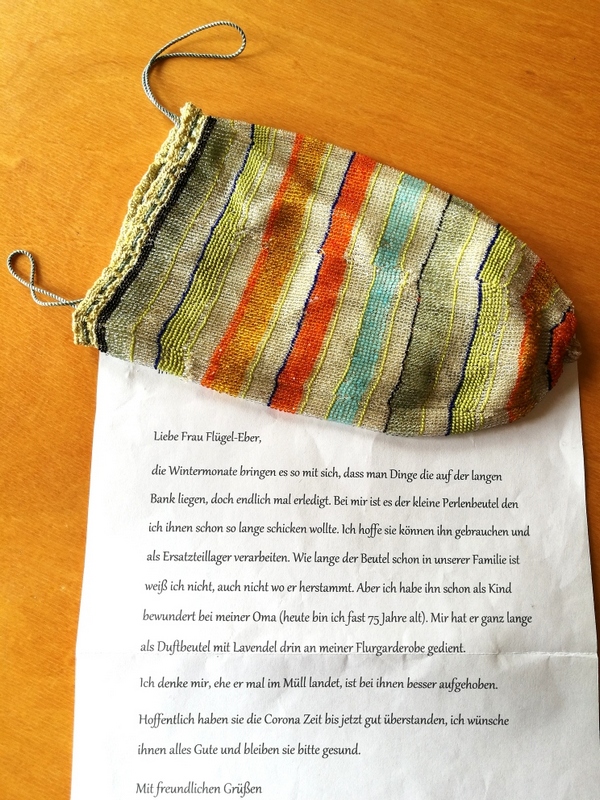 Liebe Frau Flügel-Eber,
die Wintermonate bringen es so mit sich, dass man Dinge die auf der langen
Bank liegen, doch endlich mal erledigt. Bei mir ist es der kleine Perlenbeutel den
ich ihnen schon so lange schicken wollte. Ich hoffe sie können ihn gebrauchen und
als Ersatzteillager verarbeiten. Wie lange der Beutel schon in unserer Familie ist
weiß ich nicht, auch nicht wo er herstammt. Aber ich habe ihn schon als Kind
bewundert bei meiner Oma (heute bin ich fast 75 Jahre alt). Mir hat er ganz lange
als Duftbeutel mit Lavendel drin an meiner Flurgarderobe gedient.
Ich denke mir, ehe er mal im Müll landet, ist bei ihnen besser aufgehoben.
Hoffentlich haben sie die Corona Zeit bis jetzt gut überstanden, ich wünsche
ihnen alles Gute und bleiben sie bitte gesund.
Mit freundlichen Grüßen